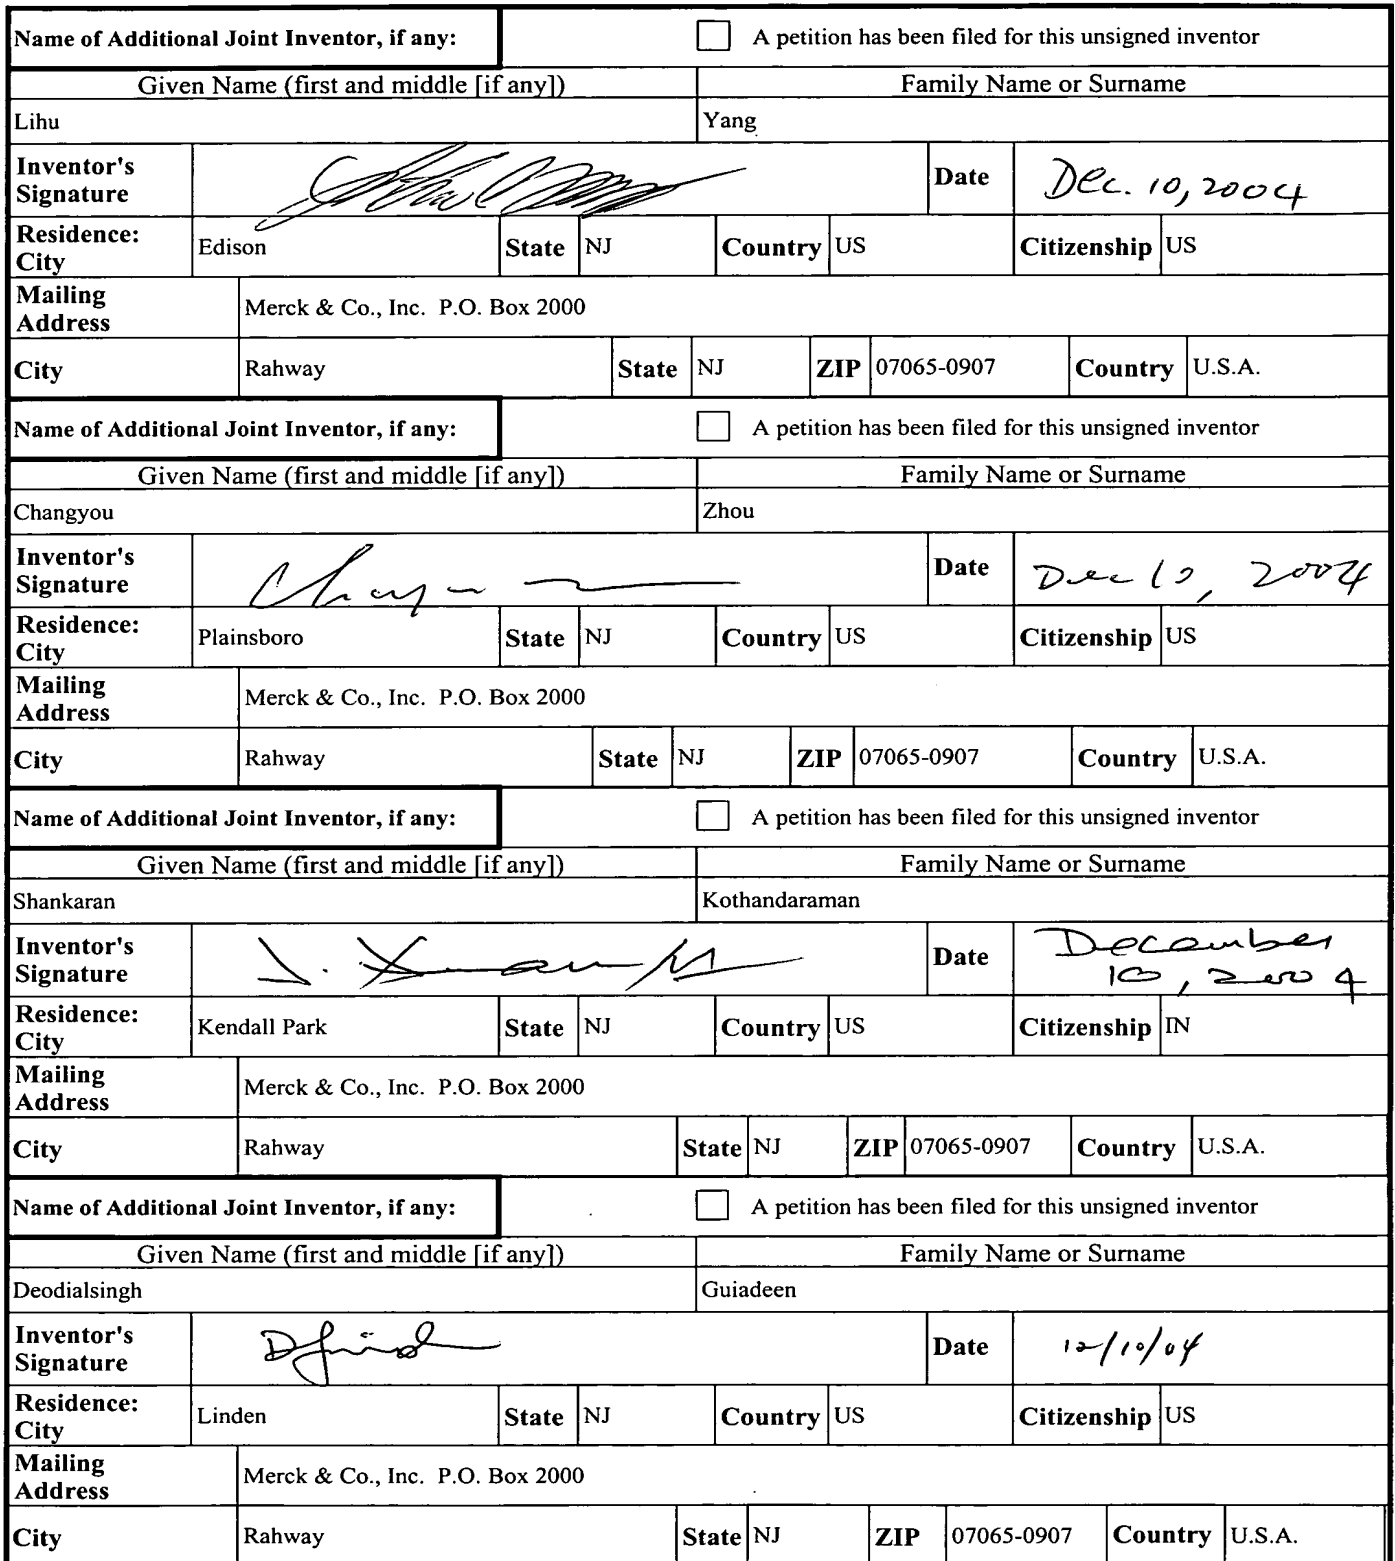 Name of Additional Joint Inventor, if any: A petition has been filed for this unsigned inventor
Given Name (first and middle [if any]) Family Name or Surname
Lihu Yang
Inventor's Signature Date Dec. 10, 2004
Residence: City Edison State NJ Country US Citizenship US
Mailing Address Merck & Co., Inc. P.O. Box 2000
City Rahway State NJ ZIP 07065-0907 Country U.S.A.
Name of Additional Joint Inventor, if any: A petition has been filed for this unsigned inventor
Given Name (first and middle [if any]) Family Name or Surname
Changyou Zhou
Inventor's Signature Date Dec 10, 2004
Residence: City Plainsboro State NJ Country US Citizenship US
Mailing Address Merck & Co., Inc. P.O. Box 2000
City Rahway State NJ ZIP 07065-0907 Country U.S.A.
Name of Additional Joint Inventor, if any: A petition has been filed for this unsigned inventor
Given Name (first and middle [if any]) Family Name or Surname
Shankaran Kothandaraman
Inventor's Signature Date December 10, 2004
Residence: City Kendall Park State NJ Country US Citizenship IN
Mailing Address Merck & Co., Inc. P.O. Box 2000
City Rahway State NJ ZIP 07065-0907 Country U.S.A.
Name of Additional Joint Inventor, if any: A petition has been filed for this unsigned inventor
Given Name (first and middle [if any]) Family Name or Surname
Deodialsingh Guiadeen
Inventor's Signature Date 12/10/04
Residence: City Linden State NJ Country US Citizenship US
Mailing Address Merck & Co., Inc. P.O. Box 2000
City Rahway State NJ ZIP 07065-0907 Country U.S.A.